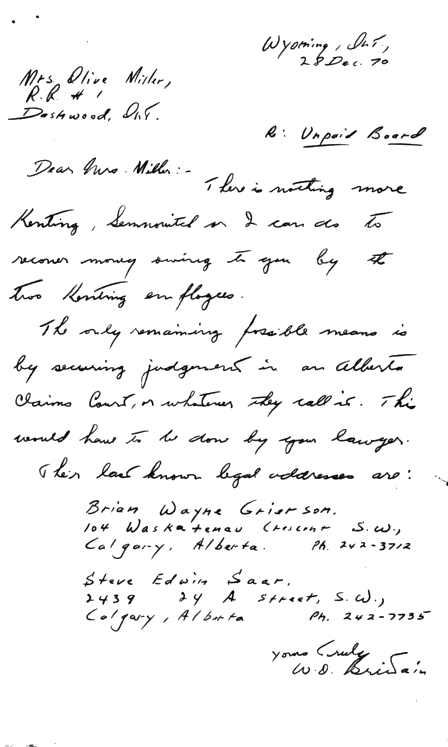 Wyoming, Ont.,
28 Dec. 70
Mrs. Olive Miller,
R.R. # 1
Dashwood, Ont.
Re: Unpaid Board
Dear Mrs. Miller:-
There is nothing more
Kenting, or I can do to
recover money owing to you by the
two Kenting employees.
The only remaining possible means is
by securing judgement in an Alberta
Claims Court, or whatever they call it. This
would have to be done by your lawyer.
Their last known legal addresses are:
Brian Wayne Grierson,
104 Waskatenau Crescent S.W.,
Calgary, Alberta. Ph. 242-3712
Steve Edwin Saar,
2439 24 A Street, S.W.,
Calgary, Alberta Ph. 242-7735
Yours Truly
W.D. Bridain